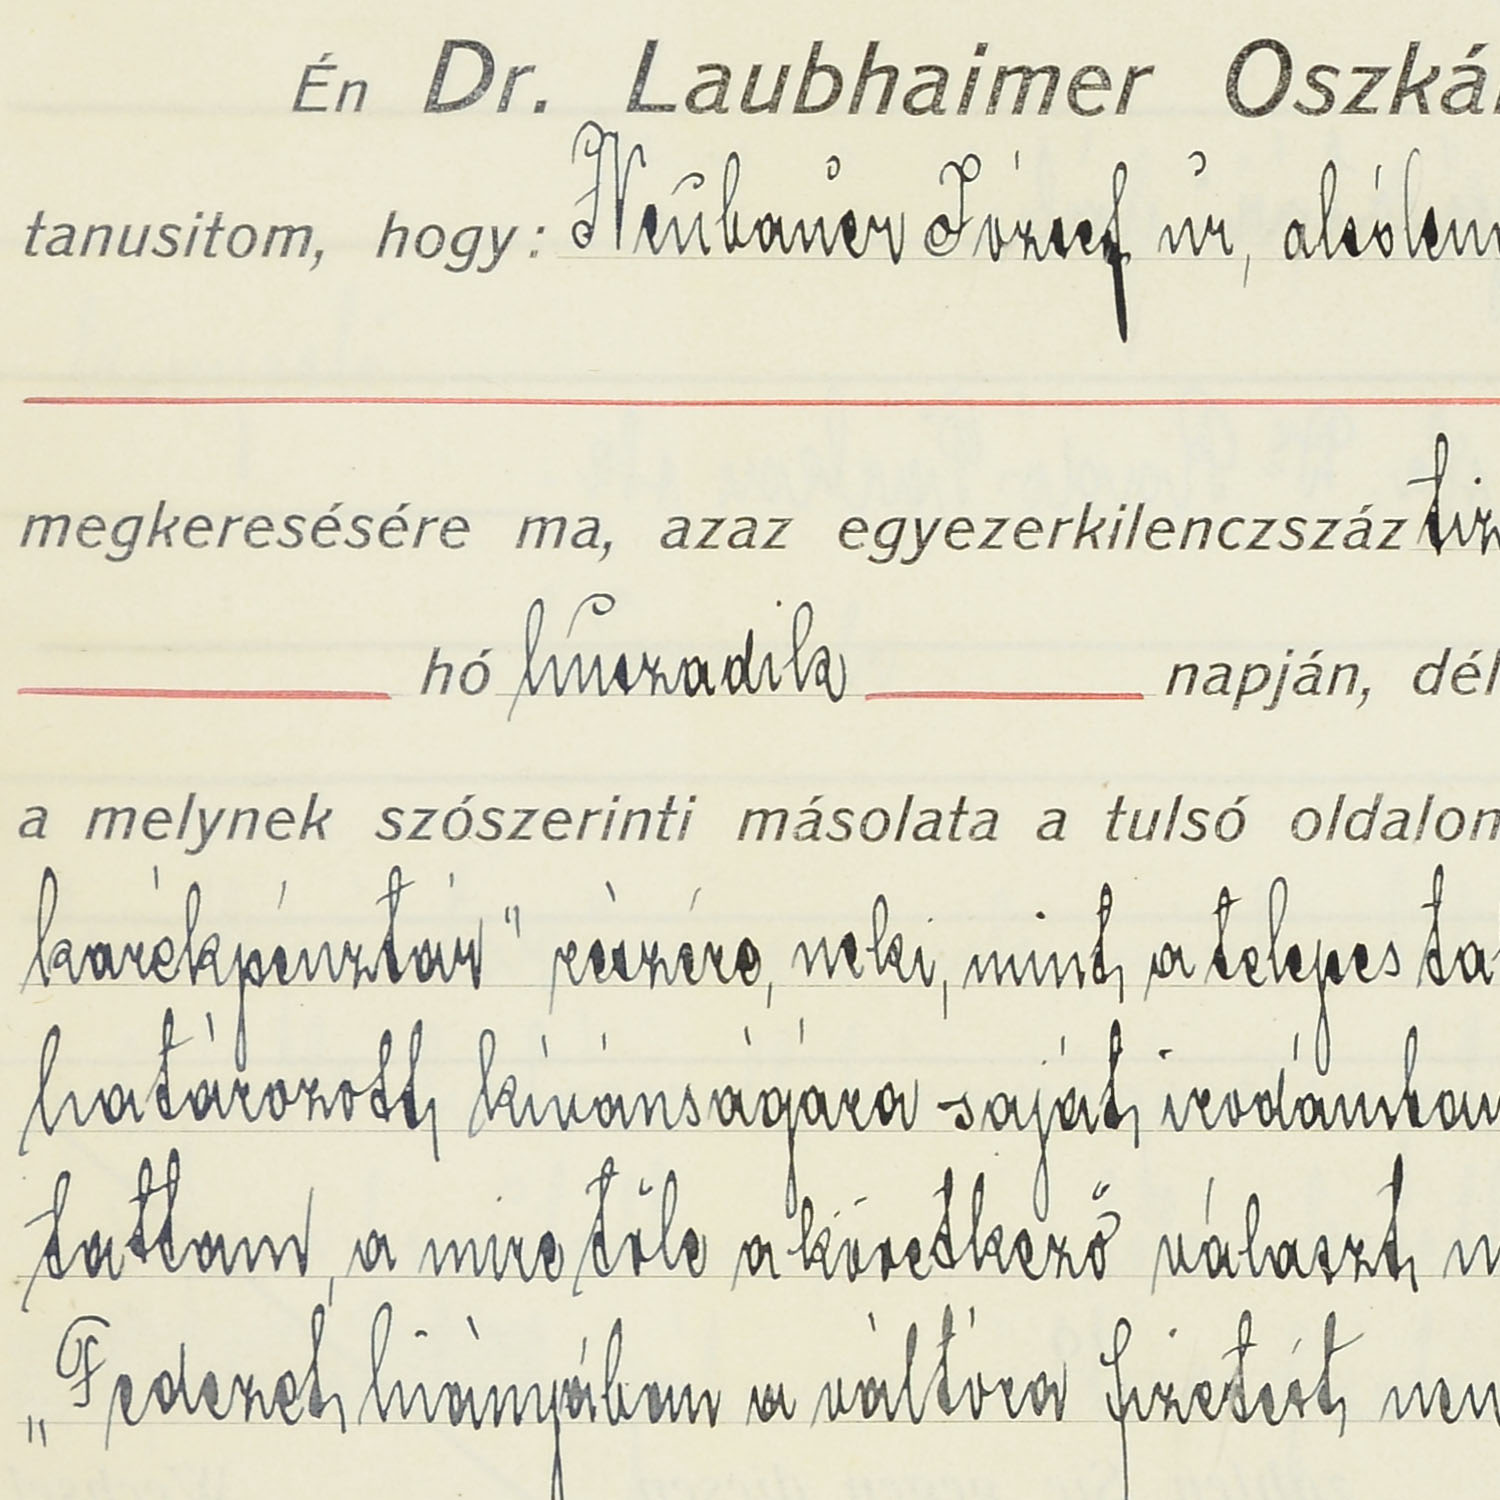 Én Dr. Laubhaimer Oszkár
tanusitom, hogy: Neubauer József úr, alsólen
megkeresésére ma, azaz egyezerkilenczszáz tiz
hó huszadik napján, dél
a melynek szószerinti másolata a tulsó oldalon
karékpénztár" részére, neki, mint a telepes ta
határozott kivánságára saját irodámban
tattam, a mire tőle a következő választ n
„Fedezet hiányában a váltóra fizetést nem